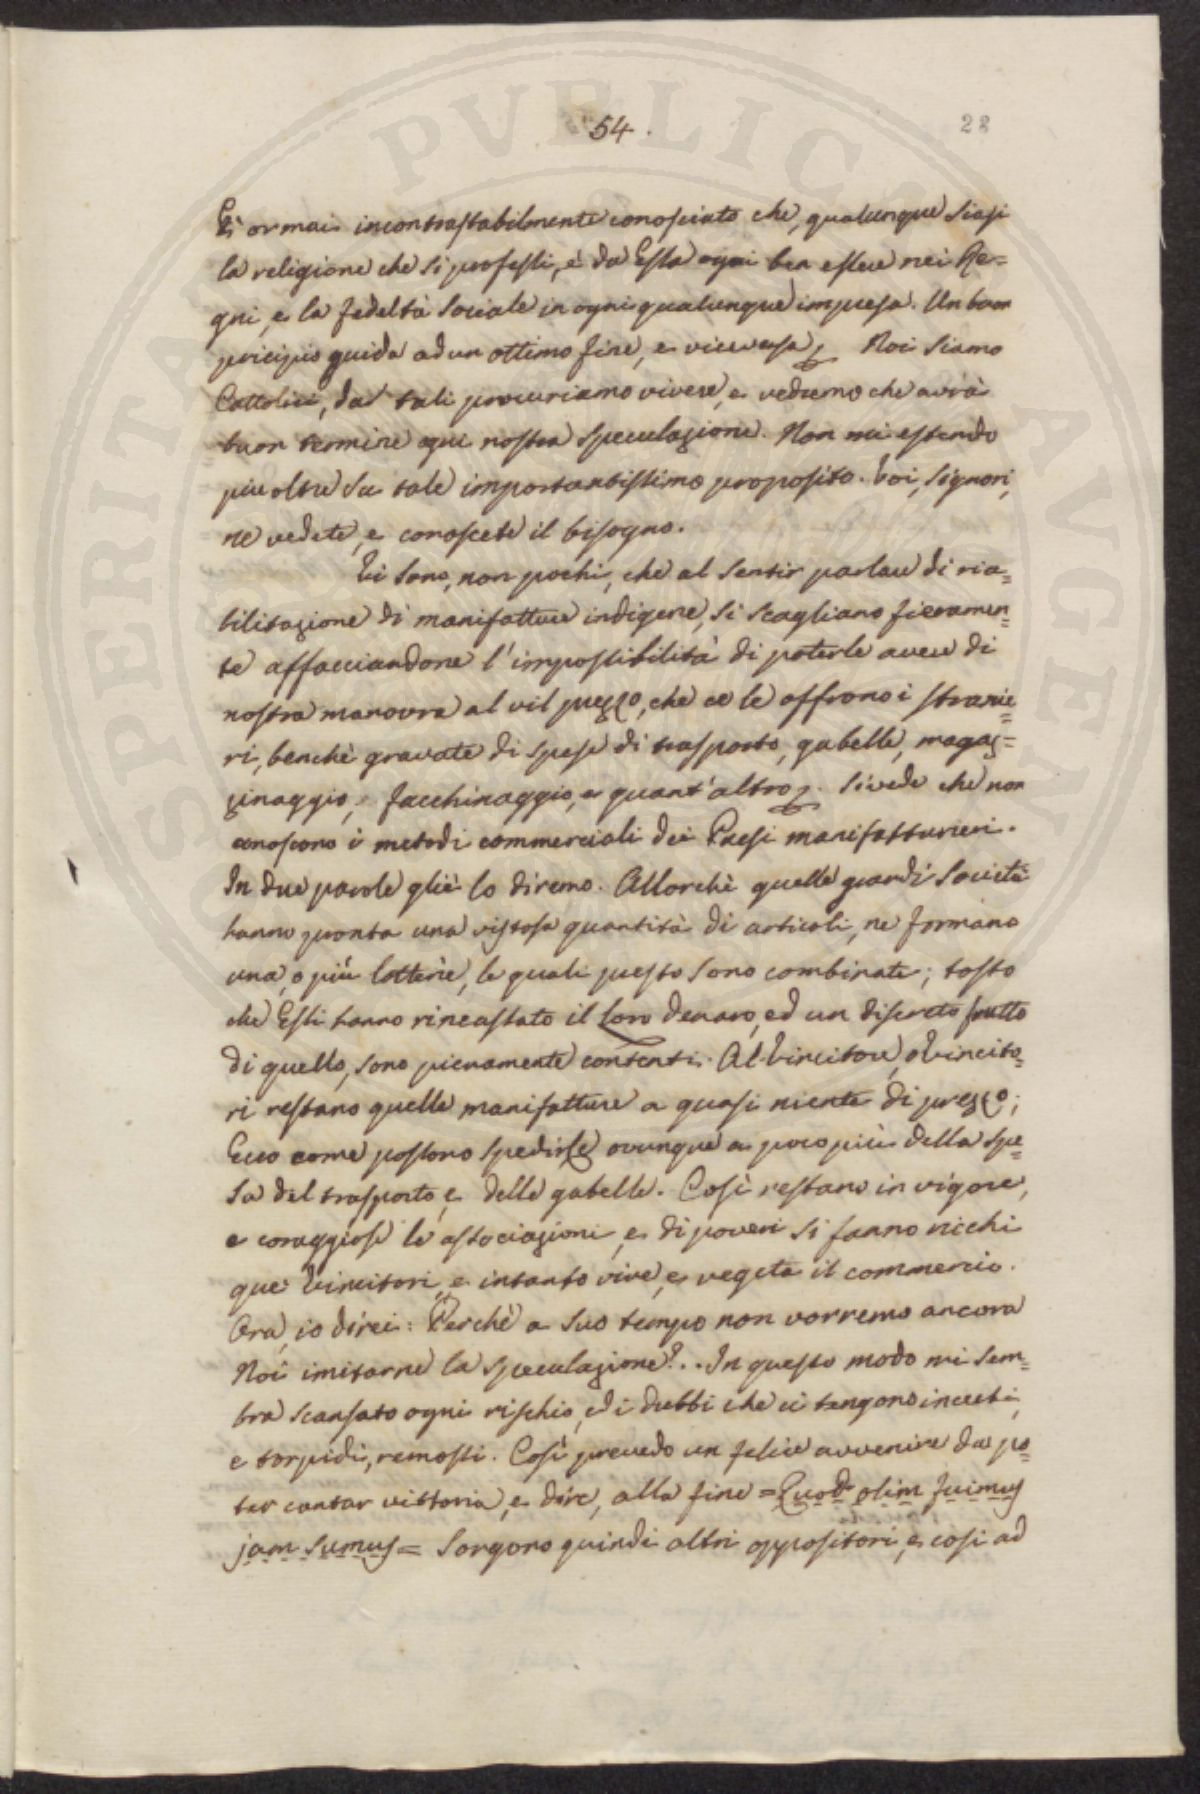 54.
28
È ormai incontrastabilmente conosciuto che, qualunque siasi
la religione che si professi, è da Essa ogni ben essere nei Re=
gni, e la fedeltà sociale in ogni qualunque impresa. Un buon
pricipio guida ad un ottimo fine, e viceversa. Noi siamo
Cattolici, da tali procuriamo vivere, e vedremo che avrà
buon termine ogni nostra speculazione. Non mi estendo
più oltre su tale importantissimo proposito. Voi, Signori,
ne vedete, e conoscete il bisogno.
Vi sono, non pochi, che al sentir parlare di ria=
bilitazione di manifatture indigene, si scagliano fieramen=
te affacciandone l'impossibilità di poterle avere di
nostra manovra al vil prezzo, che ce le offrono i stranie=
ri, benchè gravate di spese di trasporto, gabelle, magaz=
zinaggio, facchinaggio, e quant'altro. Si vede che non
conoscono i metodi commerciali dei Paesi manifatturieri.
In due parole gliè lo diremo. Allorchè quelle grandi Società
hanno pronta una vistosa quantità di articoli, ne formano
una, o più lotterie, le quali presto sono combinate; tosto
che Essi hanno rincassato il loro denaro, ed un discreto frutto
di quello, sono pienamente contenti. Al Vincitore, o Vincito=
ri restano quelle manifatture a quasi niente di prezzo;
Ecco come possono spedirle ovunque a poco più della spe=
sa del trasporto, e delle gabelle. Così restano in vigore,
e coraggiose le associazioni, e di poveri si fanno ricchi
que' Vincitori, e intanto vive, e vegeta il commercio.
Ora, io direi: Perchè a suo tempo non vorremo ancora
Noi imitarne la speculazione?.. In questo modo mi sem=
bra scansato ogni rischio, ed i dubbi che ci tengono incerti,
e torpidi, remossi. Così prevedo un felice avvenire da po=
ter cantar vittoria, e dire, alla fine = Quod olim fuimus
jam sumus = Sorgono quindi altri oppositori, e così ad
SPERITAS PVBLICA AVGENDO